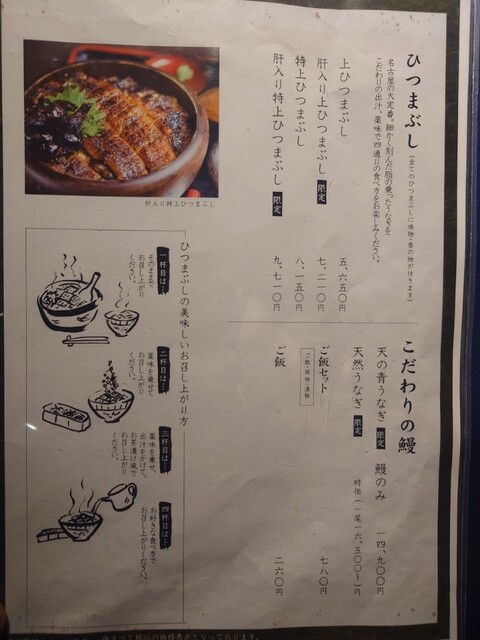 ひつまぶし（全てのひつまぶしに椀物・香の物が付きます）
名古屋の大定番。細かく刻んだ脂の乗ったうなぎを
こだわりの出汁、薬味で四通りの食べ方をお楽しみください。
上ひつまぶし 五、六五〇円
肝入り上ひつまぶし 限定 七、二一〇円
特上ひつまぶし 八、一五〇円
肝入り特上ひつまぶし 限定 九、七一〇円
肝入り特上ひつまぶし
こだわりの鰻
天の青うなぎ 限定 鰻のみ 一四、九〇〇円
天然うなぎ 限定 時価（一尾一六、五〇〇〜）円
ご飯セット 七八〇円
ご飯・椀物・漬物
ご飯 二六〇円
ひつまぶしの美味しいお召し上がり方
一杯目は…
そのままで
お召し上がり
ください。
二杯目は…
薬味を乗せて
お召し上がり
ください。
三杯目は…
薬味を乗せ、
出汁をかけて、
お茶漬け風で
お召し上がり
ください。
四杯目は…
お好きな食べ方で
お召し上がりください。